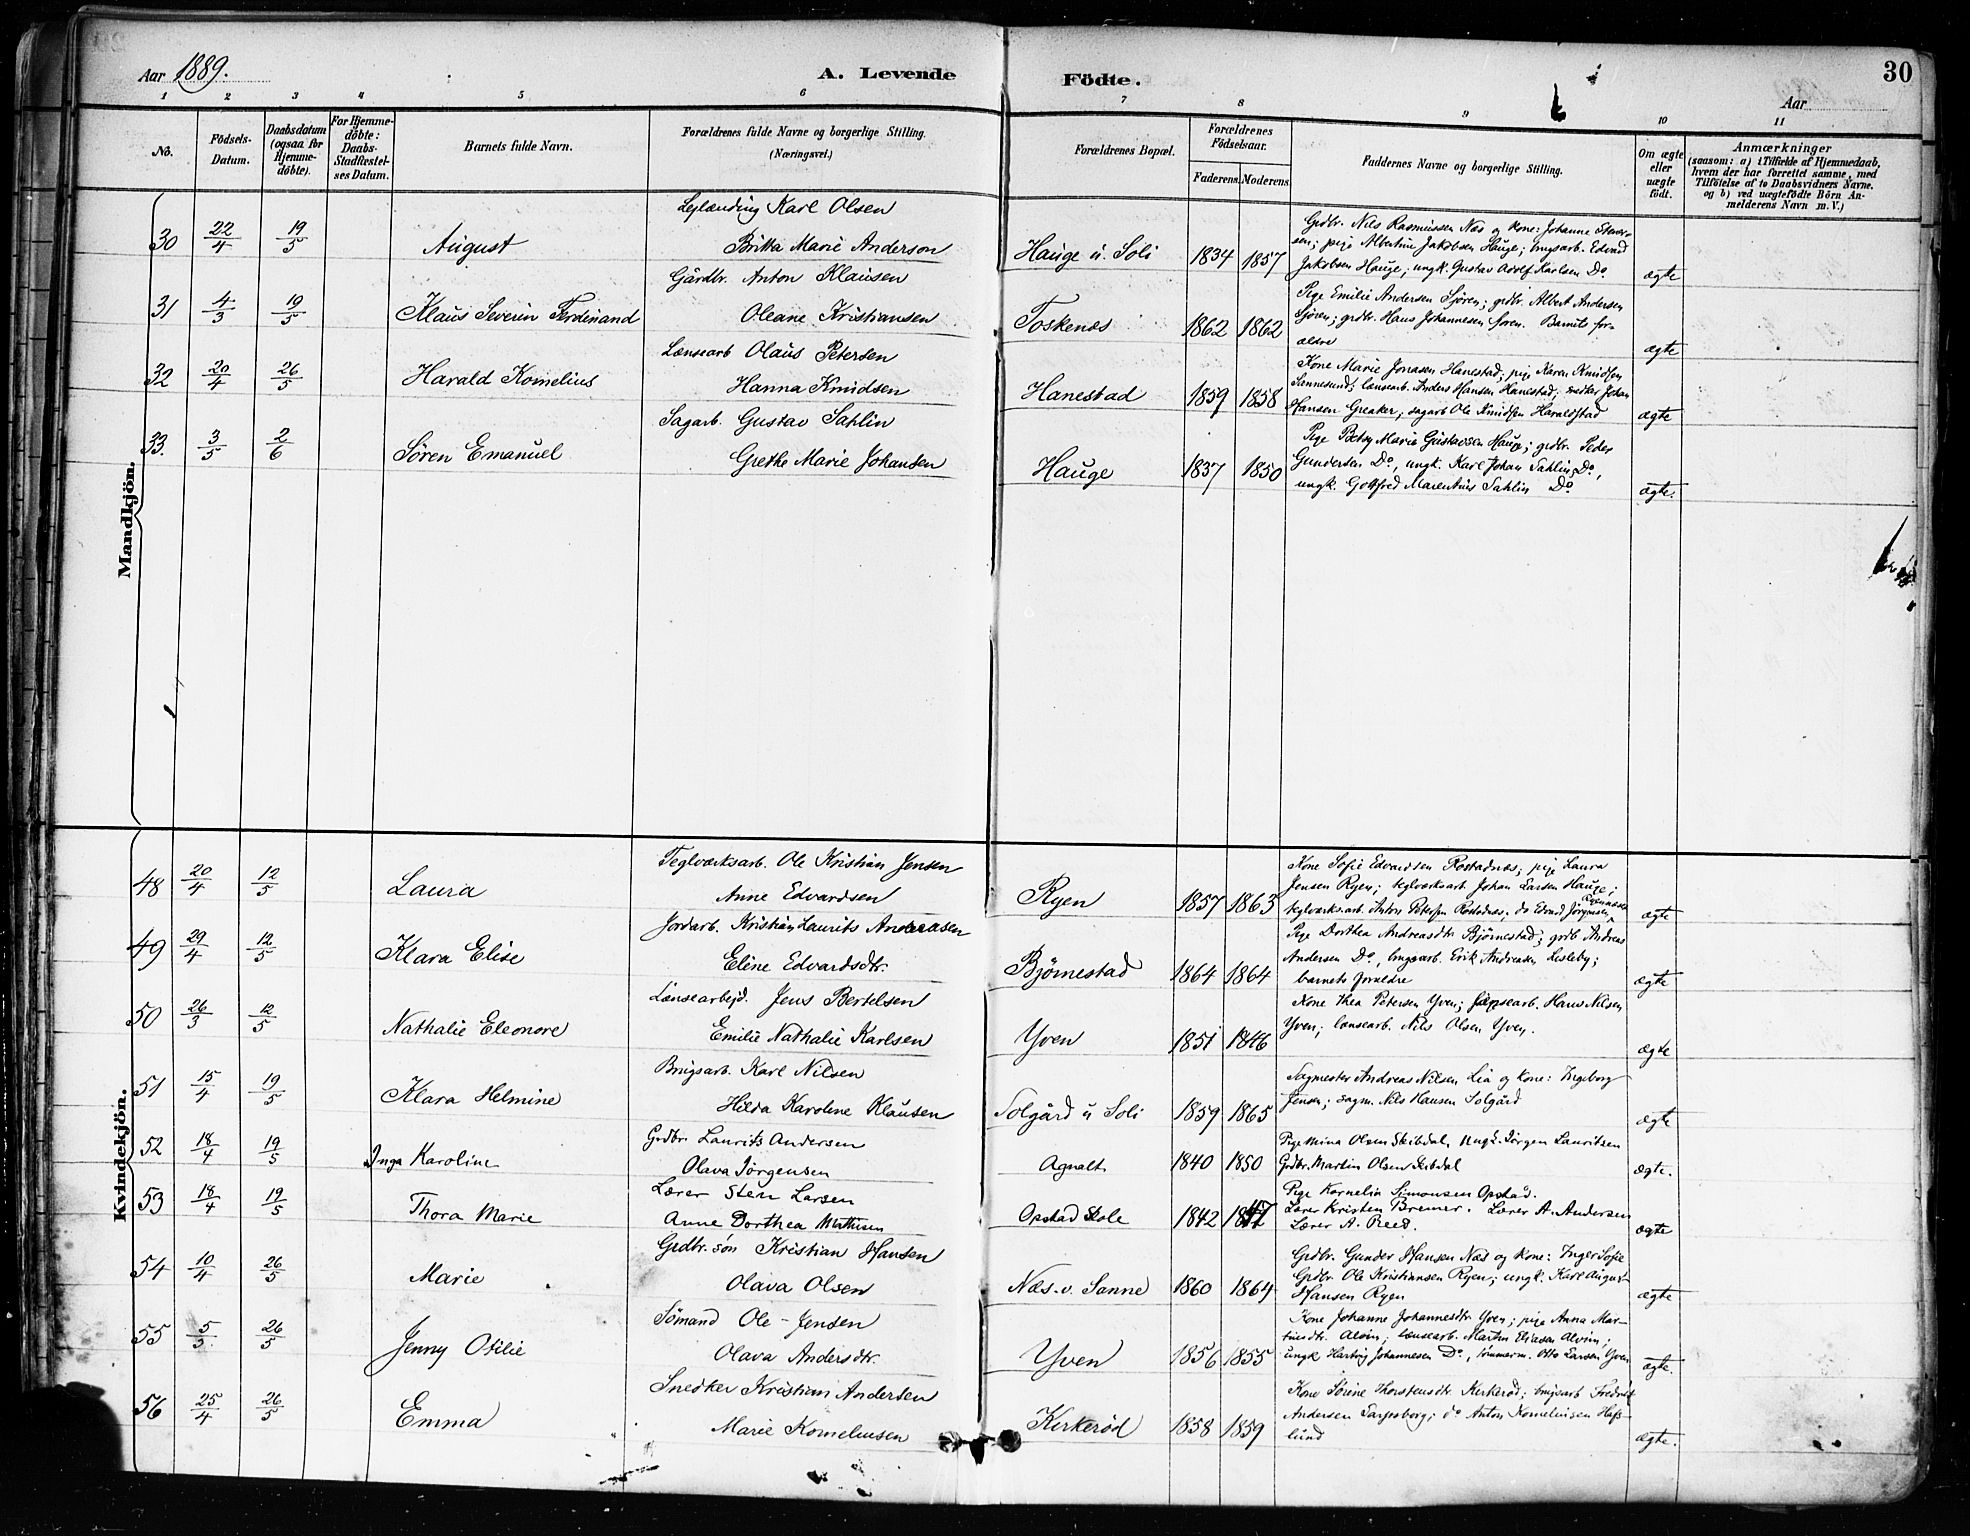 Aar 1889.
A. Levende Födte.
30
Aar
1 2 3 4 5 6 7 8 9 10 11
No.
Födsels-Datum.
Daabsdatum (ogsaa for Hjemme-döbte).
For Hjemme-döbte: Daabs-Stadfæstel-ses Datum.
Barnets fulde Navn.
Forældrenes fulde Navne og borgerlige Stilling. (Næringsvei.)
Forældrenes Bopæl.
Forældrenes Födselsaar.
Faderens. Moderens.
Faddernes Navne og borgerlige Stilling.
Om ægte eller uægte födt.
Anmærkninger
(saasom: a) i Tilfælde af Hjemmedaab,
hvem der har forrettet samme, med
Tilföielse af to Daabsvidners Navne.
og b) ved uægtefödte Börn An-
melderens Navn m. V.)
Mandkjön.
Leilænding Karl Olsen
30 22/4 19/5 August Britta Marie Anderson Hauge u. Soli 1834 1857 ægte
Grdbr. Nils Rasmussen Næs og kone: Johanne
sen; pige Albertine Jakobsen Hauge; brugsarb. Edvard
Jakobsen Hauge; ungk. Gustav Adolf Karlsen Do
Gårdbr. Anton Klausen
31 4/3 19/5 Klaus Severin Ferdinand Oleane Kristiansen Toskenæs 1862 1862 ægte
Pige Emilie Andersen Sjøren; grdbr. Albert Andersen
Sjøren; grdbr. Hans Johannesen Søren. Barnets for-
ældre
Lænsearb Olaus Petersen
32 20/4 26/5 Harald Kornelius Hanna Knudsen Hanestad 1859 1858 ægte
Kone Marie Jonasen Hanestad; pige Karen Knudsen
Sannesund; lænsearb. Anders Hansen Hanestad; snedker Johan
Hansen Greaker; sagarb Ole Knudsen Haraldstad
Sagarb. Gustav Sahlin
33. 3/5 2/6 Søren Emanuel Grethe Marie Johansen Hauge 1837 1850 ægte.
Pige Betsy Marie Gustavsen Hauge; grdbr. Peder
Gundersen Do, ungk. Karl Johan Sahlin Do,
ungk. Gottfred Marentius Sahlin Do
Kvindekjön.
Teglværksarb. Ole Kristian Jensen
48 20/4 12/5 Laura Anne Edvardsen Ryen 1857 1863 ægte
Kone Sofie Edvardsen Rostadnæs; pige Laura
Jensen Ryen; teglværksarb Johan Larsen Hauge;
teglværksarb Anton Petersen Rostadnæs. do Edvard Jørgensen
Jordarb. Kristian Laurits Andreasen
49 29/4 12/5 Klara Elise Eline Edvardsdtr. Bjørnestad 1864 1864 ægte
Pige Dorthea Andreasdtr Bjørnestad; grdb Andreas
Andersen Do, brugsarb. Erik Andreasen Lisleby;
barnets forældre
Lænsearbejd. Jens Bertelsen
50 26/3 12/5 Nathalie Eleonore Emilie Nathalie Karlsen Yven 1851 1846 ægte
Kone Thea Petersen Yven; lænsearb. Hans Nilsen
Yven; lænsearb. Nils Olsen Yven.
Brugsarb. Karl Nilsen
51 15/4 19/5 Klara Helmine Hilda Karoline Klausen Solgård u Soli 1859 1865 ægte
Sagmester Andreas Nilsen Lia og kone: Ingeborg
Jensen; sagm. Nils Hansen Solgård
Grdbr. Laurits Andersen
52 18/4 19/5 Inga Karoline Olava Jørgensen Agnalt 1840 1850 ægte.
Pige Mina Olsen Skibdal, Ungk. Jörgen Lauritsen
Grdbr. Martin Olsen Skibdal
Lærer Sten Larsen
53 18/4 19/5 Thora Marie Anne Dorthea Mathisen Opstad Skole 1842 1847 ægte
Pige Kornelia Simonsen Opstad.
Lærer Kristen Bremer. Lærer A. Andersen
Lærer A. Reed.
Grdbr. søn Kristian Hansen
54 10/4 26/5 Marie Olava Olsen Næs v. Sanne 1860 1864 ægte
Grdbr. Gunder Hansen Næs og kone: Inger Sofie
Grdbr Ole Kristiansen Ryen; ungk. Karl August
Hansen Ryen
Sømand Ole Jensen
55 5/3 26/5 Jenny Otilie Olava Andersdtr. Yven 1856 1855 ægte.
Kone Johanne Johannesdtr. Yven; pige Anna Mar-
tinsdtr. Alvim; lænsearb. Martin Eliasen Alvim;
ungk Hartvig Johannesen Do, tømmerm. Otto Larsen Yven
Snedker Kristian Andersen
56 25/4 26/5 Emma Marie Korneliusen Kirkerød 1858 1859 ægte.
Kone Sørine Thorstensdtr. Kirkerød; brugsarb Fredrik
Andersen Sarpsborg; do Anton Korneliusen Hafs-
lund